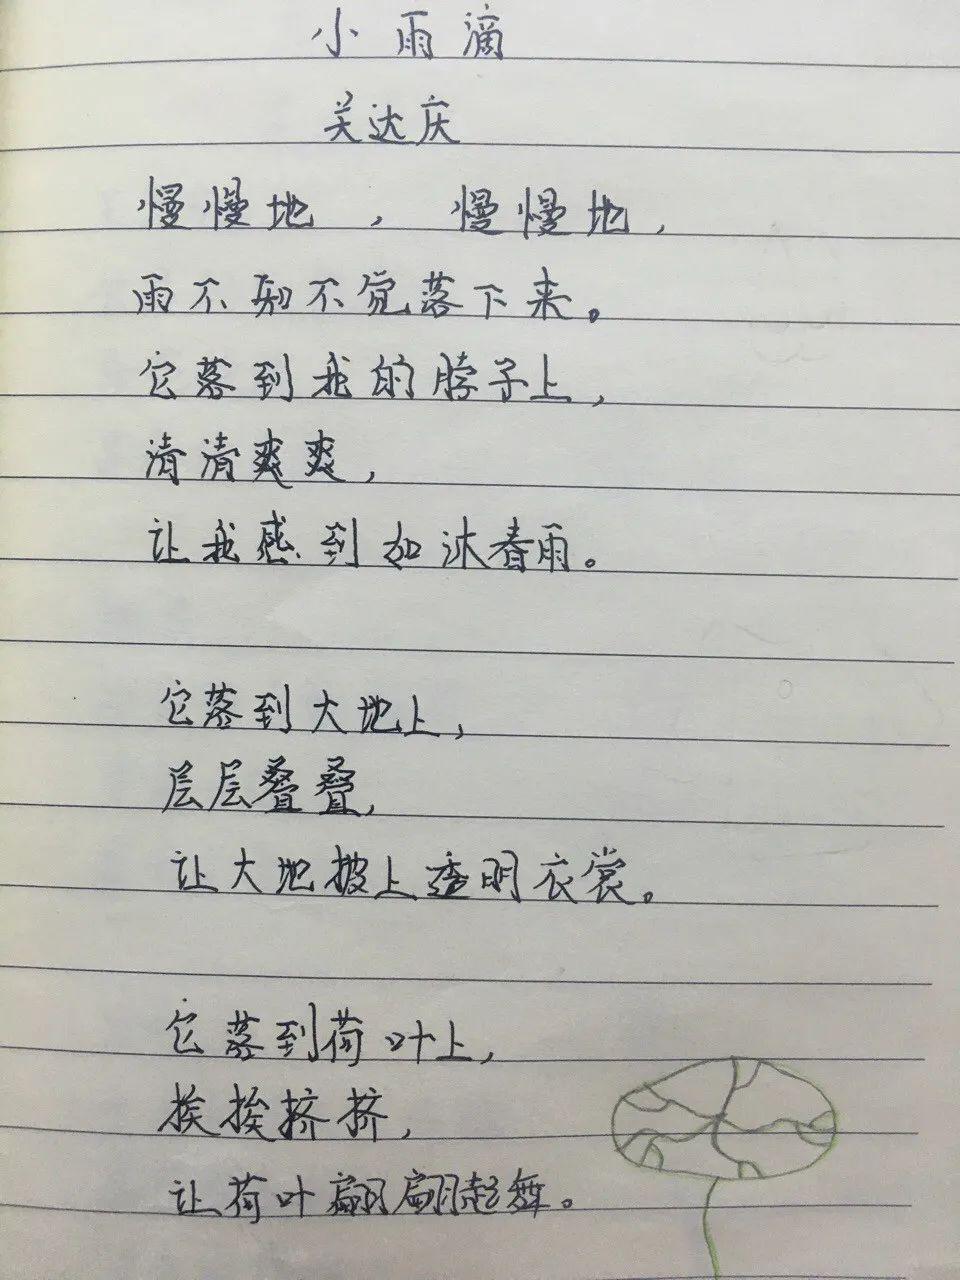 小雨滴
关达庆
慢慢地，慢慢地，
雨不知不觉落下来。
它落到我的脖子上，
清清爽爽，
让我感到如沐春雨。
它落到大地上，
层层叠叠，
让大地披上透明衣裳。
它落到荷叶上，
挨挨挤挤，
让荷叶翩翩起舞。